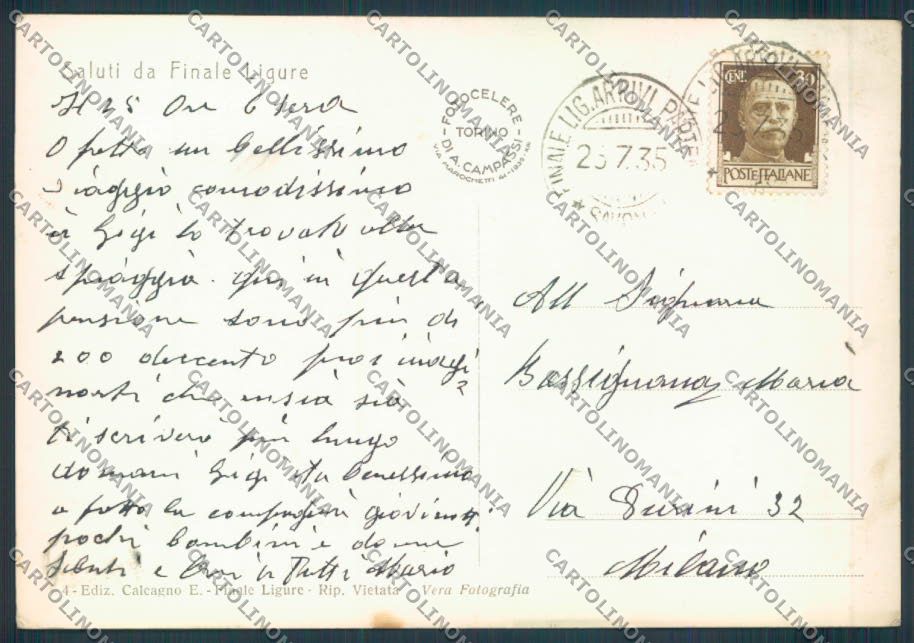 Saluti da Finale Ligure
Il 25 Ore 6 sera
O fatto un bellissimo
viaggio comodissimo
a Gigi lo trovato alla
spiaggia. qui in questa
pensione sono piu di
200 duecento puoi imagi
narti che ansia sia
ti scriverò piu lungo
domani Gigi sta benessimo
a fatto la compagnia
pochi bambini e donne
Saluti e baci a Tutti Mario
4 - Ediz. Calcagno E. - Finale Ligure - Rip. Vietata Vera Fotografia
FOTOCELERE
TORINO
DI A. CAMPASSI
VIA MAROCHETTI 41-1935-XIII
FINALE LIG. ARRIVI PARTENZE
25.7.35
* SAVONA
CENT. 30
POSTE ITALIANE
All Signora
Bassignana Maria
Via Durini 32
Milano
CARTOLINOMANIA